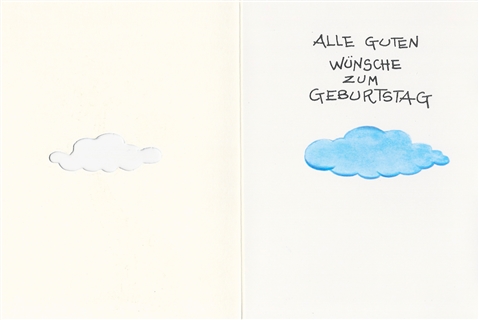 ALLE GUTEN
WÜNSCHE
ZUM
GEBURTSTAG